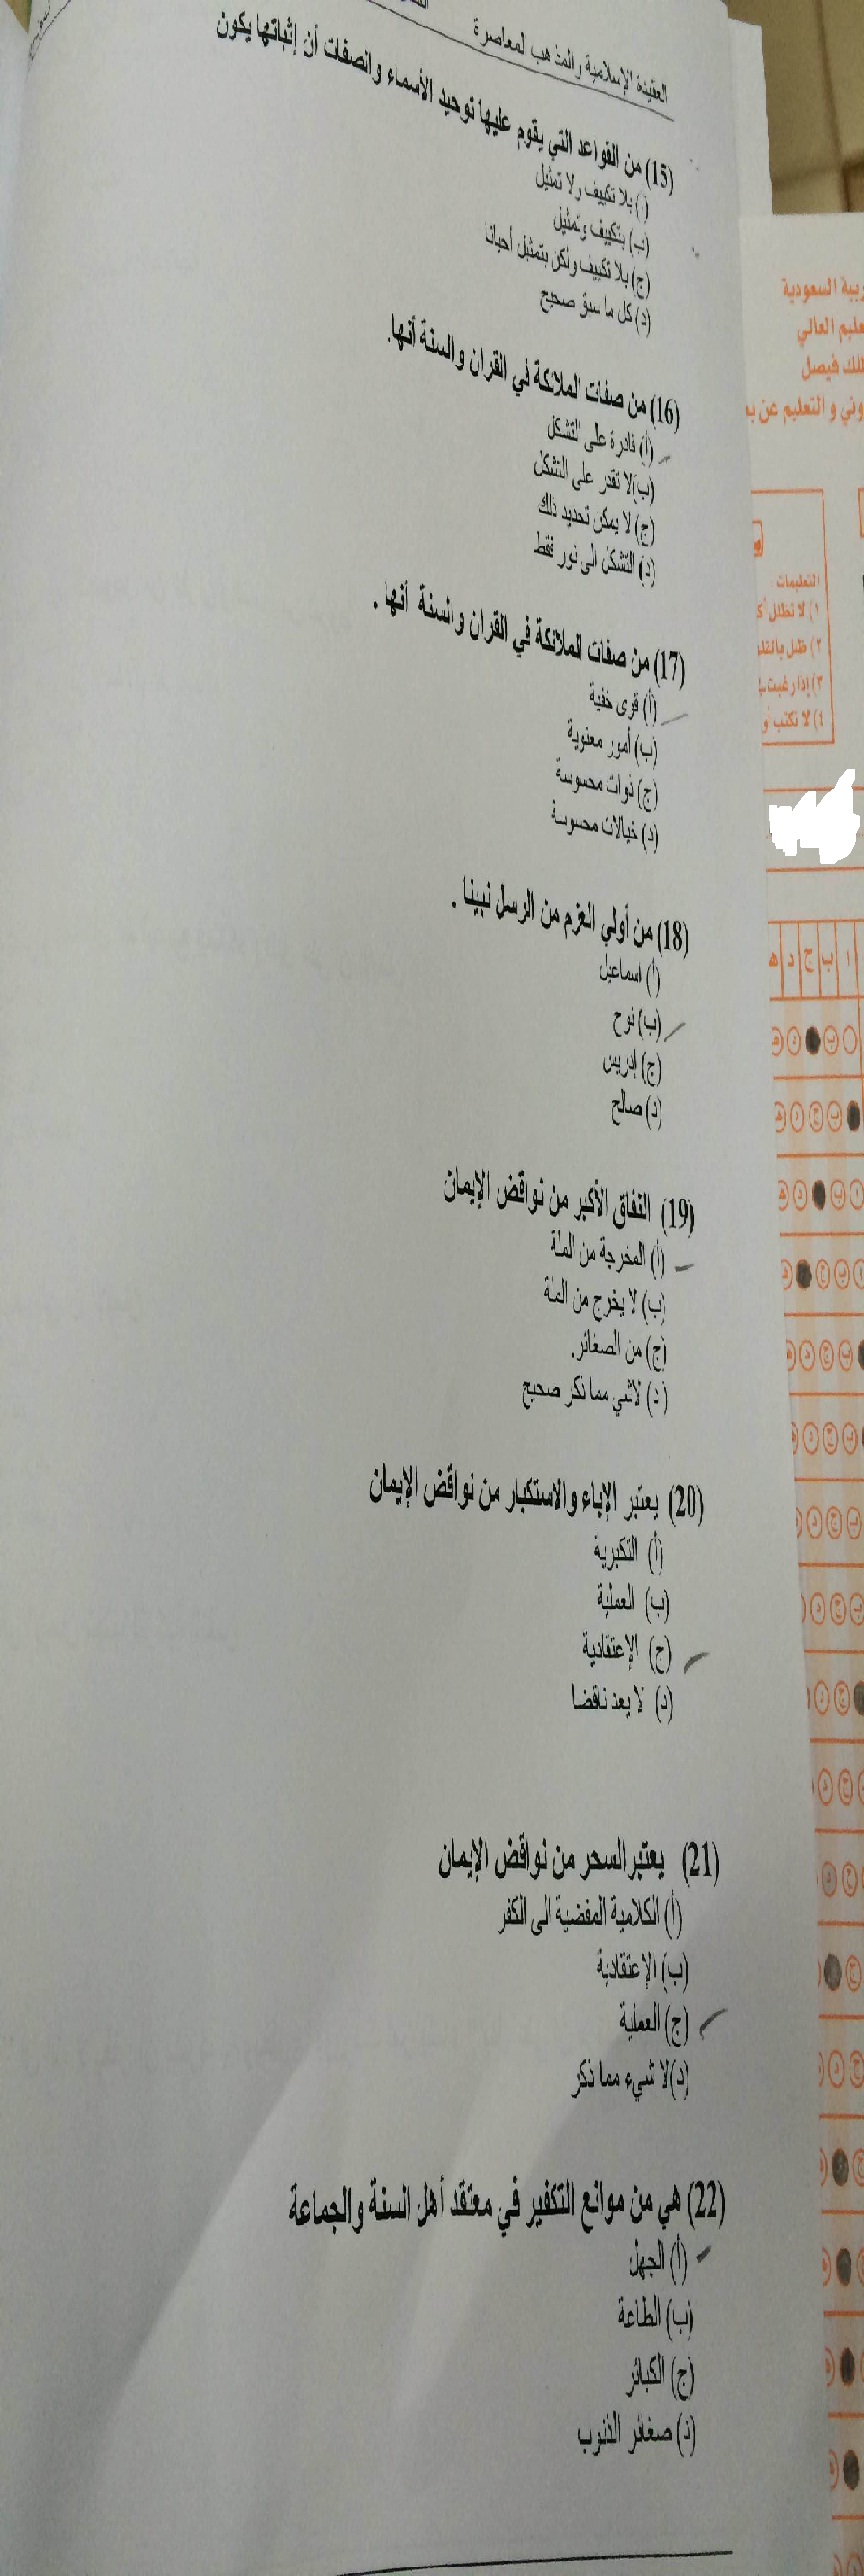 العقيدة الإسلامية والمذاهب المعاصرة
(15) من القواعد التي يقوم عليها توحيد الأسماء والصفات أن إثباتها يكون
(أ) بلا تكييف ولا تمثيل
(ب) بتكييف وتمثيل
(ج) بلا تكييف ولكن بتمثيل أحيانا
(د) كل ما سبق صحيح
(16) من صفات الملائكة في القران والسنة أنها.
(أ) قادرة على التشكل
(ب) لا تقدر على التشكل
(ج) لا يمكن تحديد ذلك
(د) التشكل الى نور فقط
(17) من صفات الملائكة في القران والسنة أنها .
(أ) قوى خفية
(ب) أمور معنوية
(ج) ذوات محسوسة
(د) خيالات محسوسة
(18) من أولي العزم من الرسل نبينا .
(أ) اسماعيل
(ب) نوح
(ج) إدريس
(د) صالح
(19) النفاق الأكبر من نواقض الإيمان
(أ) المخرجة من الملة
(ب) لا يخرج من الملة
(ج) من الصغائر.
(د) لاشي مما ذكر صحيح
(20) يعتبر الإباء والاستكبار من نواقض الإيمان
(أ) التكبرية
(ب) العملية
(ج) الإعتقادية
(د) لا يعد ناقضا
(21) يعتبر السحر من نواقض الإيمان
(أ) الكلامية المفضية الى الكفر
(ب) الإعتقادية
(ج) العملية
(د) لا شيء مما ذكر
(22) هي من موانع التكفير في معتقد أهل السنة والجماعة
(أ) الجهل
(ب) الطاعة
(ج) الكبائر
(د) صغائر الذنوب
السعودية
التعليمات
١) لا تظلل
٤) لا تكتب
ا ب ج د ه